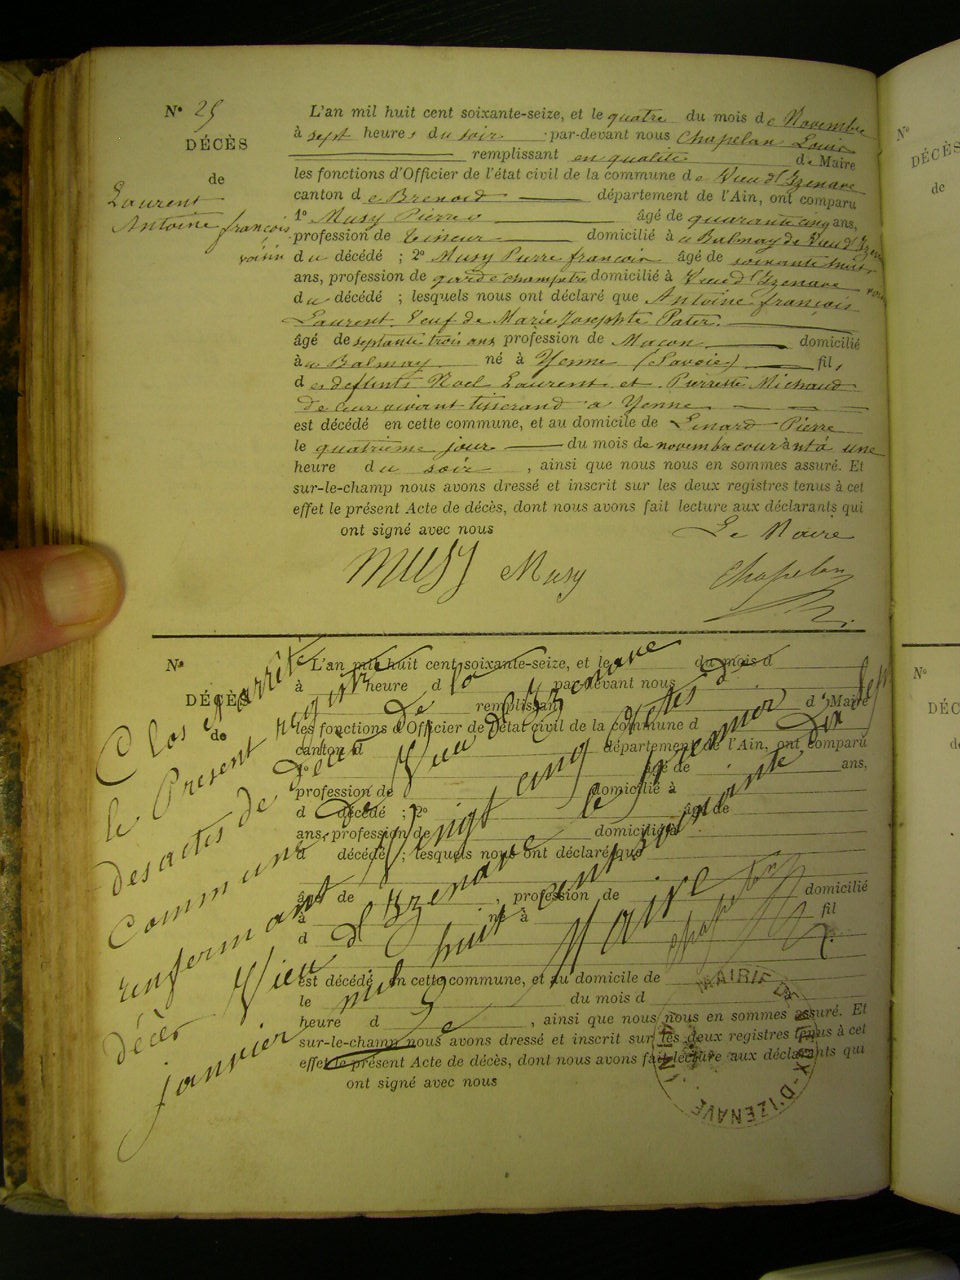 Nº 25
DÉCÈS
de
Laurent
Antoine françois
L'an mil huit cent soixante-seize, et le quatre du mois de Novembre
à sept heures du soir par-devant nous Chapelan Louis
remplissant en qualité de Maire
les fonctions d'Officier de l'état civil de la commune de Vieu d'Izenave
canton de Brenod département de l'Ain, ont comparu
1º Musy Pierre âgé de quarante cinq ans,
profession de domicilié à a Balmay de Vieu d'Izenave
voisin du décédé ; 2º Musy Pierre françois âgé de soixante huit
ans, profession de garde champetre domicilié à Vieu d'Izenave voisin
du décédé ; lesquels nous ont déclaré que Antoine françois
Laurent veuf de Marie Josephte Pater
âgé de septante trois ans profession de Macon domicilié
à a Balmay né à Yenne (Savoie) fils
des defunts Noel Laurent et Pierrette Michaud
de leur vivant tisserand a Yenne
est décédé en cette commune, et au domicile de Linard Pierre
le quatrieme jour du mois de novembre courant à une
heure du soir , ainsi que nous nous en sommes assuré. Et
sur-le-champ nous avons dressé et inscrit sur les deux registres tenus à cet
effet le présent Acte de décès, dont nous avons fait lecture aux déclarants qui
ont signé avec nous
Le Maire
Musy Musy Chapelan
Nº
DÉCÈS
de
L'an mil huit cent soixante-seize, et le du mois d
à heure d par-devant nous
remplissant d Maire
les fonctions d'Officier de l'état civil de la commune d
canton d département de l'Ain, ont comparu
1º âgé de ans,
profession de domicilié à
d décédé ; 2º âgé de
ans, profession de domicilié à
d décédé ; lesquels nous ont déclaré que
âgé de , profession de domicilié
à né à fil
d
est décédé en cette commune, et au domicile de
le du mois d
heure d , ainsi que nous nous en sommes assuré. Et
sur-le-champ nous avons dressé et inscrit sur les deux registres tenus à cet
effet le présent Acte de décès, dont nous avons fait lecture aux déclarants qui
ont signé avec nous
Clos et arrêté
le Présent registre
des actes de Décès de la
Commune de Vieu d'Izenave
renfermant Vingt cinq actes de
décès Vieu d'Izenave le premier
janvier mil huit cent soixante dix sept
Le Maire
Chapelan
MAIRIE DE VIEUX-D'IZENAVE
(AIN)
Nº
DÉCÈS
de
Nº
DÉC
d